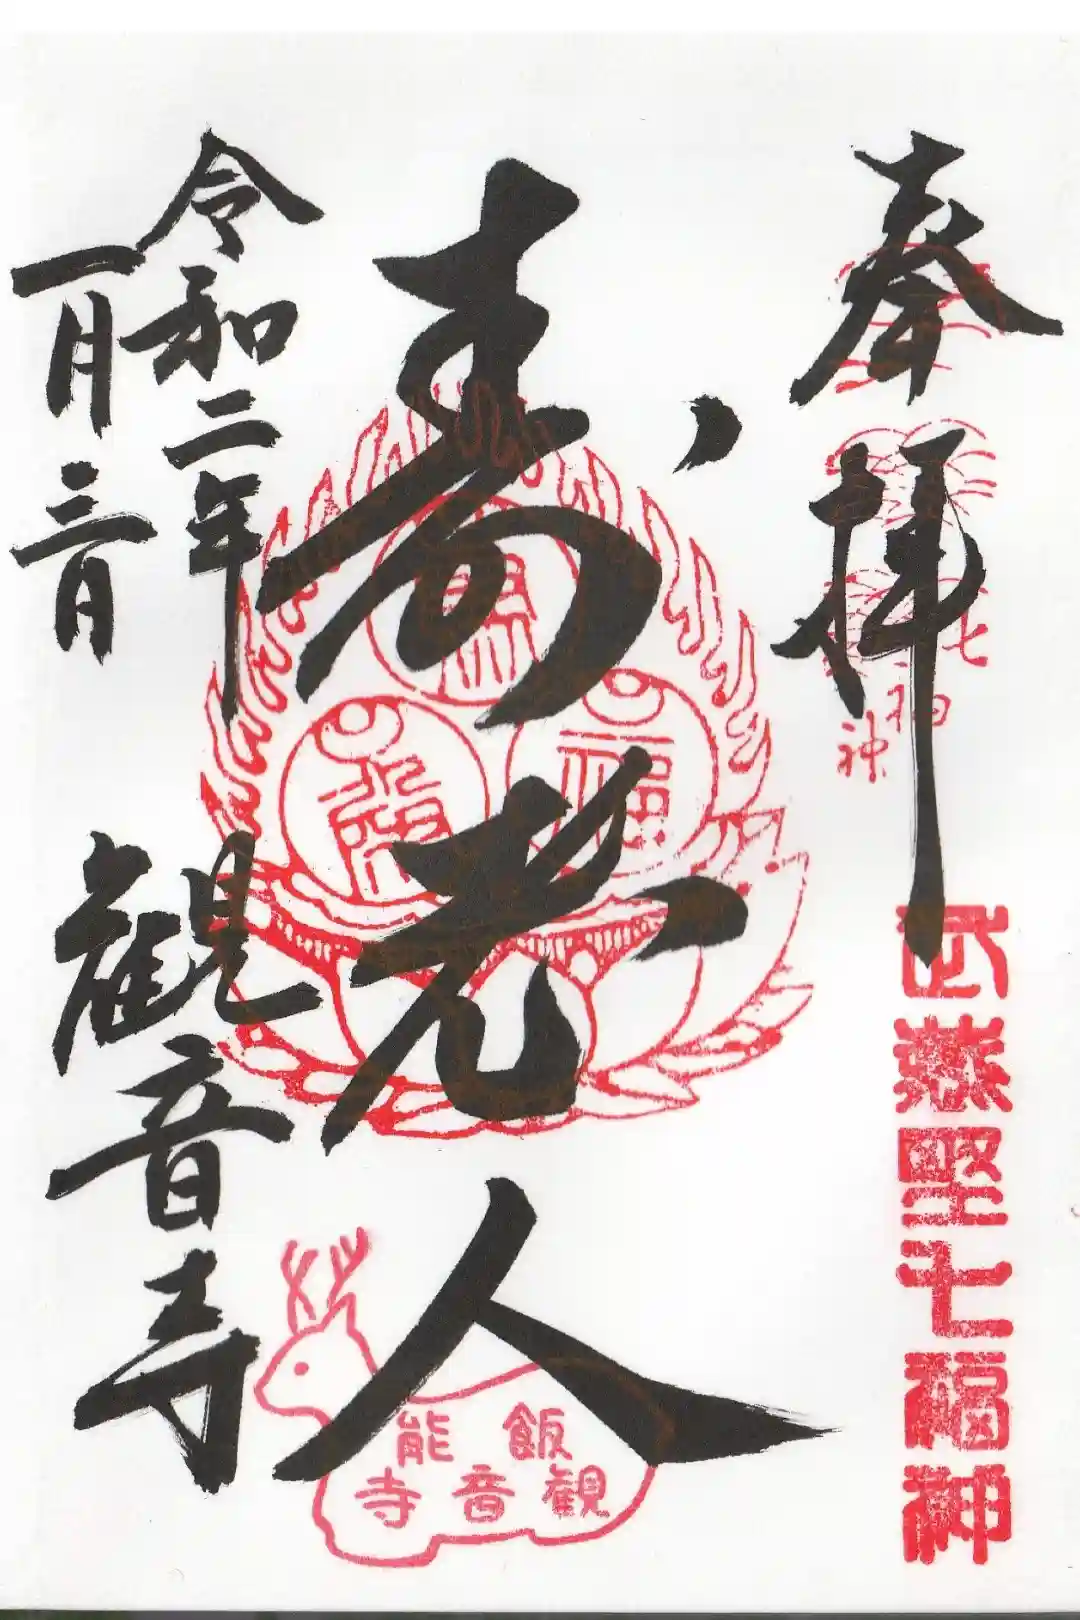 奉拝
七福神
武蔵野七福神
寿老人
福
飯能
観音寺
令和二年
一月三日
観音寺